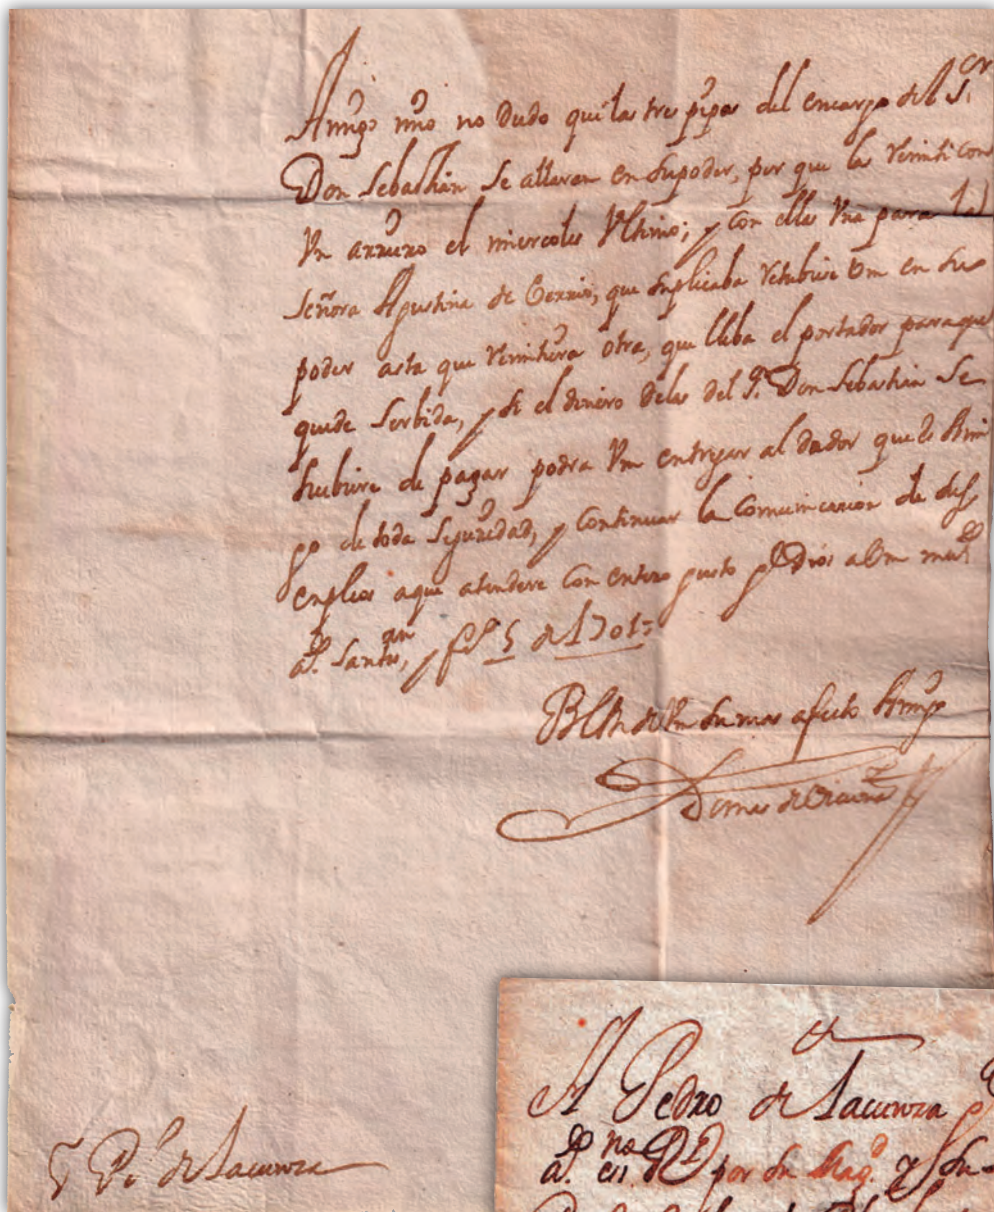 Amigo mio no dudo que las tres pipas del encargo del S.or
Don Sebastian se allaran en su poder, por que las Remiti con
Vn arriero el miercoles Vltimo; y con ellas Vna para la
señora Agustina de, que suplicaba Retubiese Vm en su
poder asta que Remitiera otra, que lleba el portador para que
quede serbida, y si el dinero de las del S.r Don Sebastian se
hubiere de pagar podra Vm entregar al dador que es Ami
go de toda seguridad, y continuar la comunicacion de sus
enpleos a que atendere con entero gusto g.de Dios a Vm mu.s
a.s Sant.an, y 5 de 1701=
BLM de Vm su mas afecto Amigo
de
S.r P.o de Lacunza
A Pedro de Lacunza
por su Mag.d y su